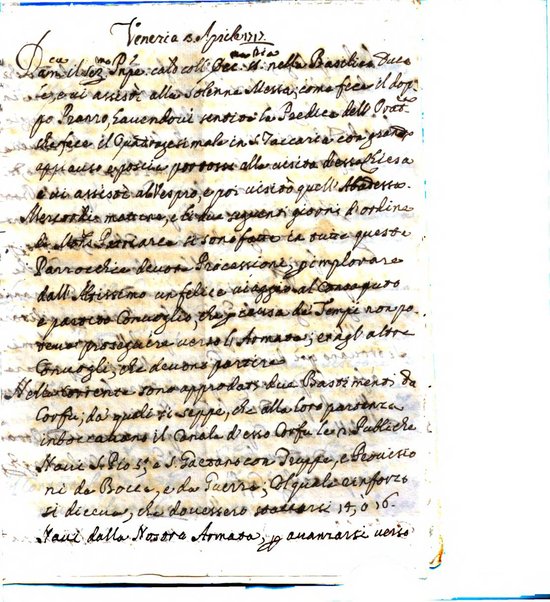 Venezia 3 Aprile 1717
Dom.ca il Ser.mo Pnpe calò coll' Ecc.ma Sig.ria nella Basilica Duca
le, e vi assisté alla Solenne Messa, come fece il dop
po Pranzo, havendovi sentita la Predica dell' Orat.re
che fece il Quaragesimale in S. Zaccaria con grand.o
applauso, e poscia portossi alla visita d'essa Chiesa
e vi assisté al Vespro, e poi visitò quell' Abadessa.
Mercordì mattina, e li due seguenti giorni d'ordine
di Patriarca si sono fatte in tutte queste
Parrocchie devote Processioni, p implorare
dall' Altissimo un felice viaggio al
e partito Convoglio, che p causa de Tempi non po
teva proseguire verso l'Armata, e agl' altri
Convogli, che devono partire
Nella corrente sono approdati due Bastimenti da
Corfù, da quali si seppe, che alla loro partenza
imboccavano il Canale d'esso Corfù le 2 Publiche
Navi S. Pio e S. Gaetano con Truppe, e Provisio
ni da Bocca, e da Guerra; Il quale rinforzo
si diceva, che dovessero staccarsi 14, ò 16
Navi dalla Nostra Armata, p avanzarsi verso